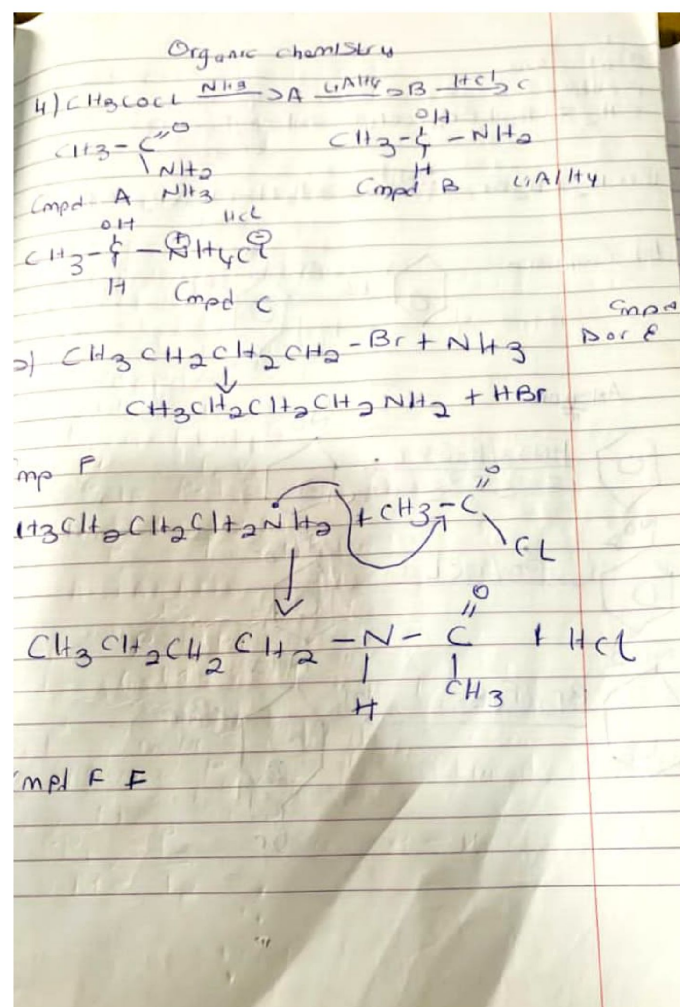 Organic chemistry
4) CH3COCl NH3 → A LiAlH4 → B HCl → C
CH3 - C = O
NH2
Cmpd A NH3
OH
CH3 - C - NH2
H
Cmpd B LiAlH4
OH HCl
CH3 - C - N⊕H4Cl⊖
H Cmpd C
CH3CH2CH2CH2 - Br + NH3
D or E
↓
CH3CH2CH2CH2NH2 + HBr
mp F
H3CH2CH2CH2NH2 + CH3 - C = O
CL
↓
CH3CH2CH2CH2 - N - C = O + HCl
H CH3
mpd F F